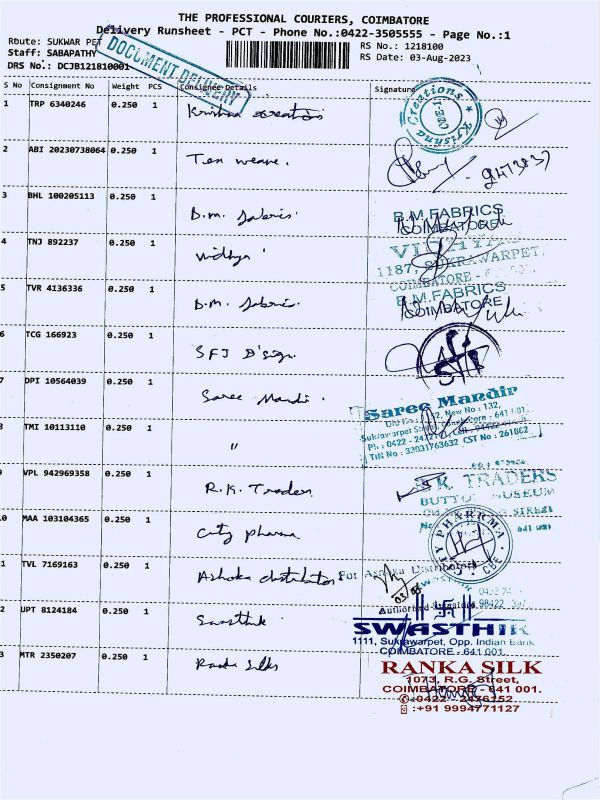 THE PROFESSIONAL COURIERS, COIMBATORE
Delivery Runsheet - PCT - Phone No.:0422-3505555 - Page No.:1
Route: SUKWAR PET
RS No.: 1218100
Staff: SABAPATHY
RS Date: 03-Aug-2023
DRS No.: DCJB121810001
DOCUMENT DELIVERY
S No Consignment No Weight PCS Consignee Details Signature
1 TRP 6340246 0.250 1 Krishna creations
Krishna Creations
2 ABI 20230738064 0.250 1 Ten weave.
3 BHL 100205113 0.250 1 B.m. fabrics
B.M.FABRICS
COIMBATORE
4 TNJ 892237 0.250 1 vidhya
1187, SUKRAWARPET,
COIMBATORE -
5 TVR 4136336 0.250 1 B.m. fabrics
B.M.FABRICS
COIMBATORE
6 TCG 166923 0.250 1 SFJ D'sign
7 DPI 10564039 0.250 1 Saree Mandir
Saree Mandir
New No : 132,
Coimbatore - 641 001.
Ph : 0422 -
TIN No : 33031763632 CST No : 261062
8 TMI 10113110 0.250 1 "
9 VPL 942969358 0.250 1 R.K. Traders
TRADERS
BUTTON MUSEUM
STREET
0 MAA 103104365 0.250 1 City pharma
CITY PHARRMA
CBE
1 TVL 7169163 0.250 1 Ashoka distributors
For Ashoka Distributors
2 UPT 8124184 0.250 1 Swasthik
SWASTHIK
1111, Sukrawarpet, Opp. Indian Bank
COIMBATORE - 641 001
3 MTR 2350207 0.250 1 Ranka Silks
RANKA SILK
1073, R.G. Street,
COIMBATORE - 641 001.
0422 - 2476152
:+91 9994771127